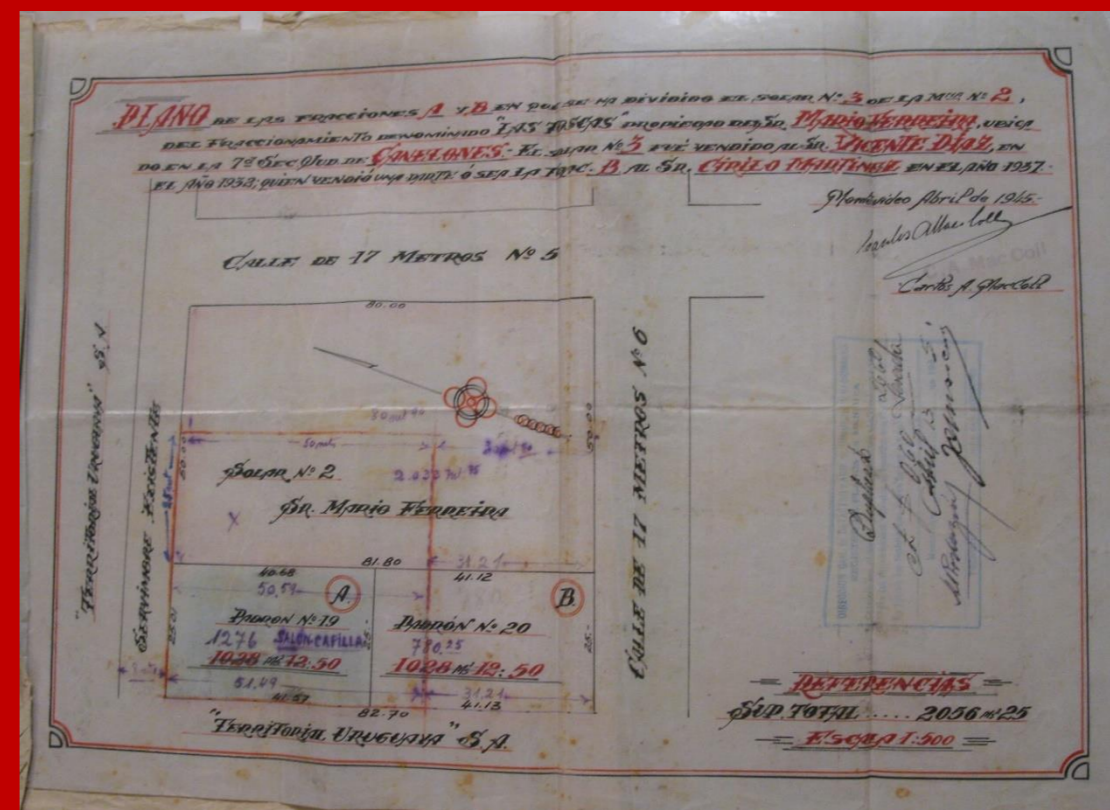 PLANO DE LAS FRACCIONES A Y B EN QUE SE HA DIVIDIDO EL SOLAR Nº 3 DE LA Mna Nº 2,
DEL FRACCIONAMIENTO DENOMINADO "LAS TOSCAS" PROPIEDAD DEL SR. MARIO FERREIRA, UBICA
DO EN LA 7ª SEC. JUD. DE CANELONES - EL SOLAR Nº 3 FUÉ VENDIDO AL SR. VICENTE DIAZ, EN
EL AÑO 1933, QUIEN VENDIÓ UNA PARTE Ó SEA LA FRAC. B AL SR. CIRILO MARTINEZ EN EL AÑO 1937.-
Montevideo Abril de 1945.-
Carlos A. MacColl
CALLE DE 17 METROS Nº 5
80.00
"TERRITORIAL URUGUAYA" S.A
SERVIDUMBRE EXISTENTE
CALLE DE 17 METROS Nº 6
50.00
50.00
SOLAR Nº 2
SR. MARIO FERREIRA
X
81.80
31.21
40.68
41.12
50.59
A
B
PADRON Nº 19
PADRÓN Nº 20
1276 SALON-CAPILLA
780,25
1028 m² 12.50
1028 m² 12.50
25.01
25.-
51.49
31.21
41.57
41.13
82.70
"TERRITORIAL URUGUAYA" S.A.
REFERENCIAS
SUP. TOTAL .... 2056 m² 25
ESCALA 1:500